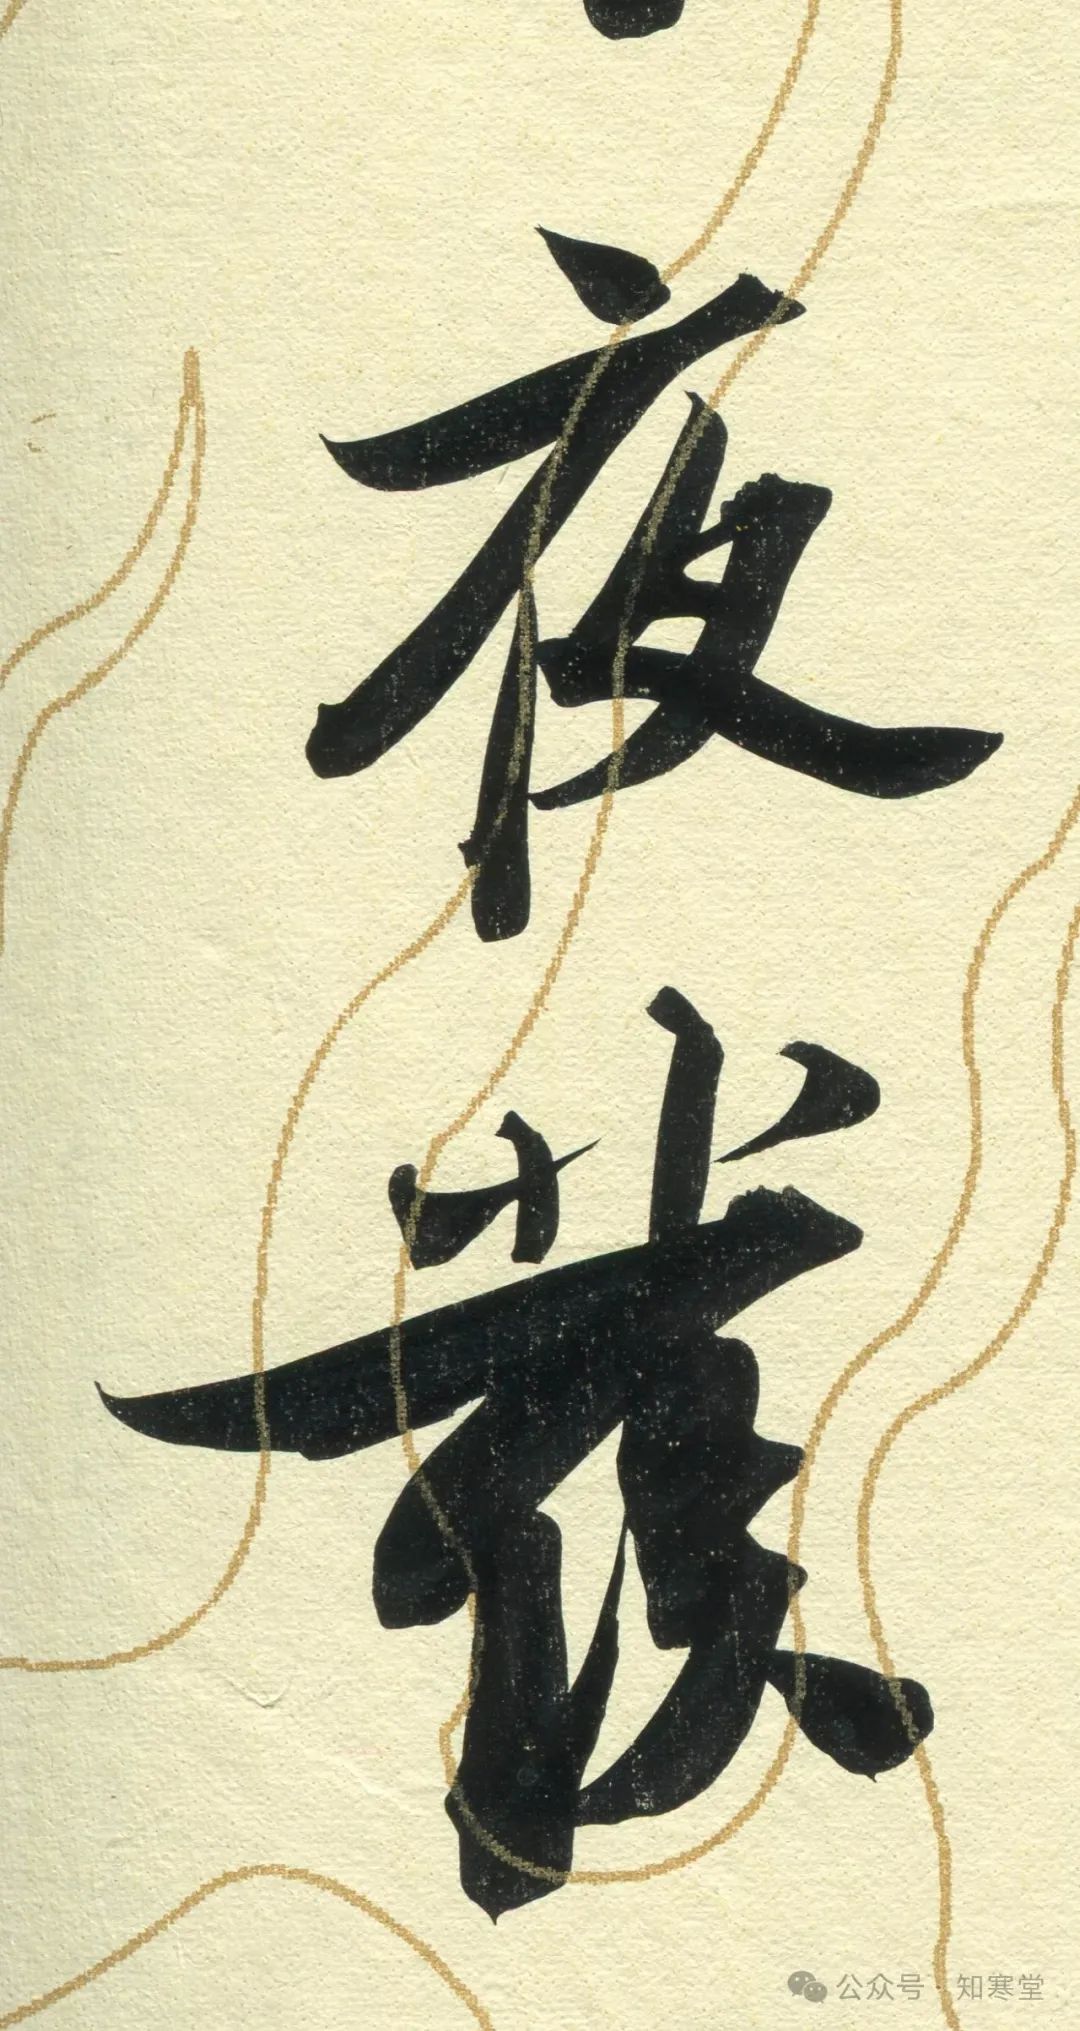 夜
發
公众号 · 知寒堂